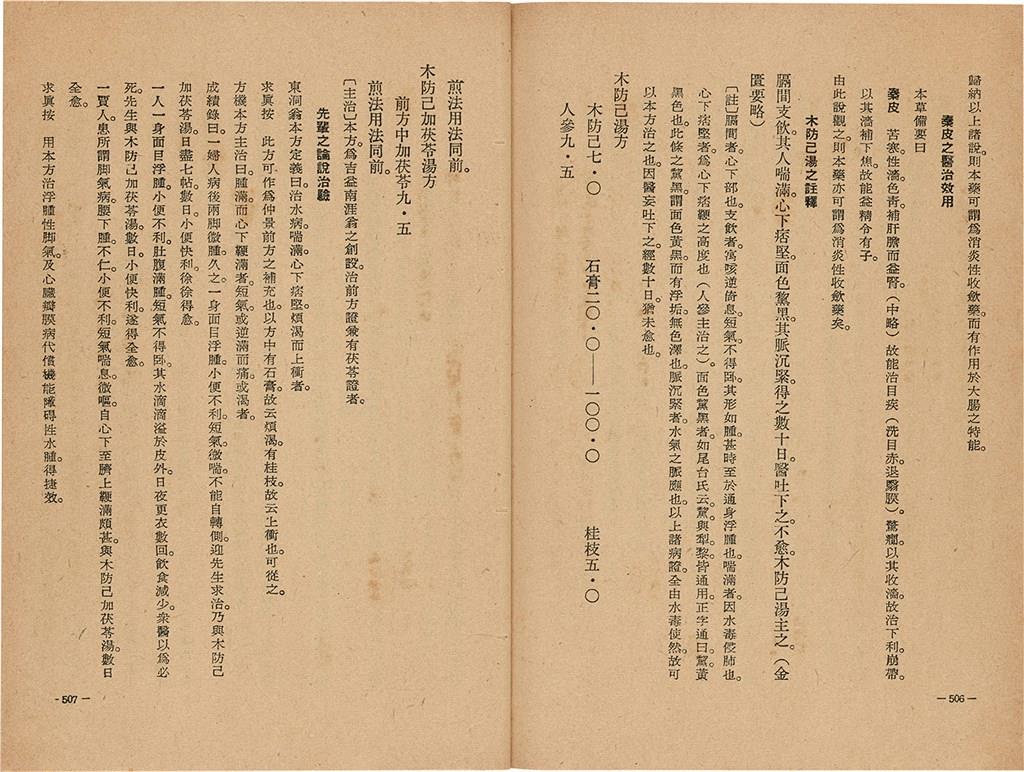 歸納以上諸說則本藥可謂爲消炎性收斂藥而有作用於大腸之特能。
秦皮之醫治效用
本草備要曰
秦皮　苦寒性濇色靑補肝膽而益腎。（中略）故能治目疾（洗目赤退翳膜）驚癇以其收濇故治下利。崩帶。
以其濇補下焦。故能益精令有子。
由此說觀之則本藥亦可謂爲消炎性收斂藥矣。
木防己湯之註釋
膈間支飮其人喘滿心下痞堅面色黧黑其脈沉緊得之數十日醫吐下之不愈木防己湯主之。（金
匱要略）
〔註〕膈間者。心下部也。支飮者。寓咳逆倚息。短氣不得臥。其形如腫。甚時至於通身浮腫也。喘滿者。因水毒侵肺也。
心下痞堅者爲心下痞鞕之高度也（人參主治之）面色黧黑者。如尾台氏云。黧與犁黎皆通用。正字通曰。黧黃
黑色也。此條之黧黑。謂面色黃黑而有浮垢無色澤也。脈沉緊者。水氣之脈應也。以上諸病證全由水毒使然。故可
以本方治之也。因醫妄吐下之經數十日猶未愈也。
木防己湯方
木防己七・〇　石膏二〇・〇——一〇〇・〇　桂枝五・〇
人參九・五
—506—
煎法用法同前。
木防己加茯苓湯方
前方中加茯苓九・五
煎法用法同前。
〔主治〕本方。爲吉益南涯翁之創設。治前方證兼有茯苓證者。
先輩之論說治驗
東洞翁本方定義曰。治水病喘滿。心下痞堅。煩渴而上衝者。
求眞按　此方可作爲仲景前方之補充也。以方中有石膏。故云煩渴。有桂枝。故云上衝也。可從之。
方機本方主治曰。腫滿而心下鞕滿者。短氣或逆滿而痛或渴者。
成績錄曰。一婦人病後兩脚微腫。久之一身面目浮腫。小便不利。短氣微喘。不能自轉側。迎先生求治。乃與木防己
加茯苓湯。日盡七帖。數日小便快利。徐徐得愈。
一人一身面目浮腫。小便不利。肚腹滿腫。短氣不得臥。其水滴滴溢於皮外。日夜更衣數回。飮食減少。衆醫以爲必
死。先生與木防己加茯苓湯。數日小便快利。遂得全愈。
一賈人。患所謂脚氣病。腰下腫。不仁。小便不利。短氣喘息。微嘔。自心下至臍上鞕滿頗甚。與木防己加茯苓湯。數日
全愈。
求眞按　用本方治浮腫性脚氣及心臟瓣膜病代償機能障碍性水腫。得捷效。
-507—